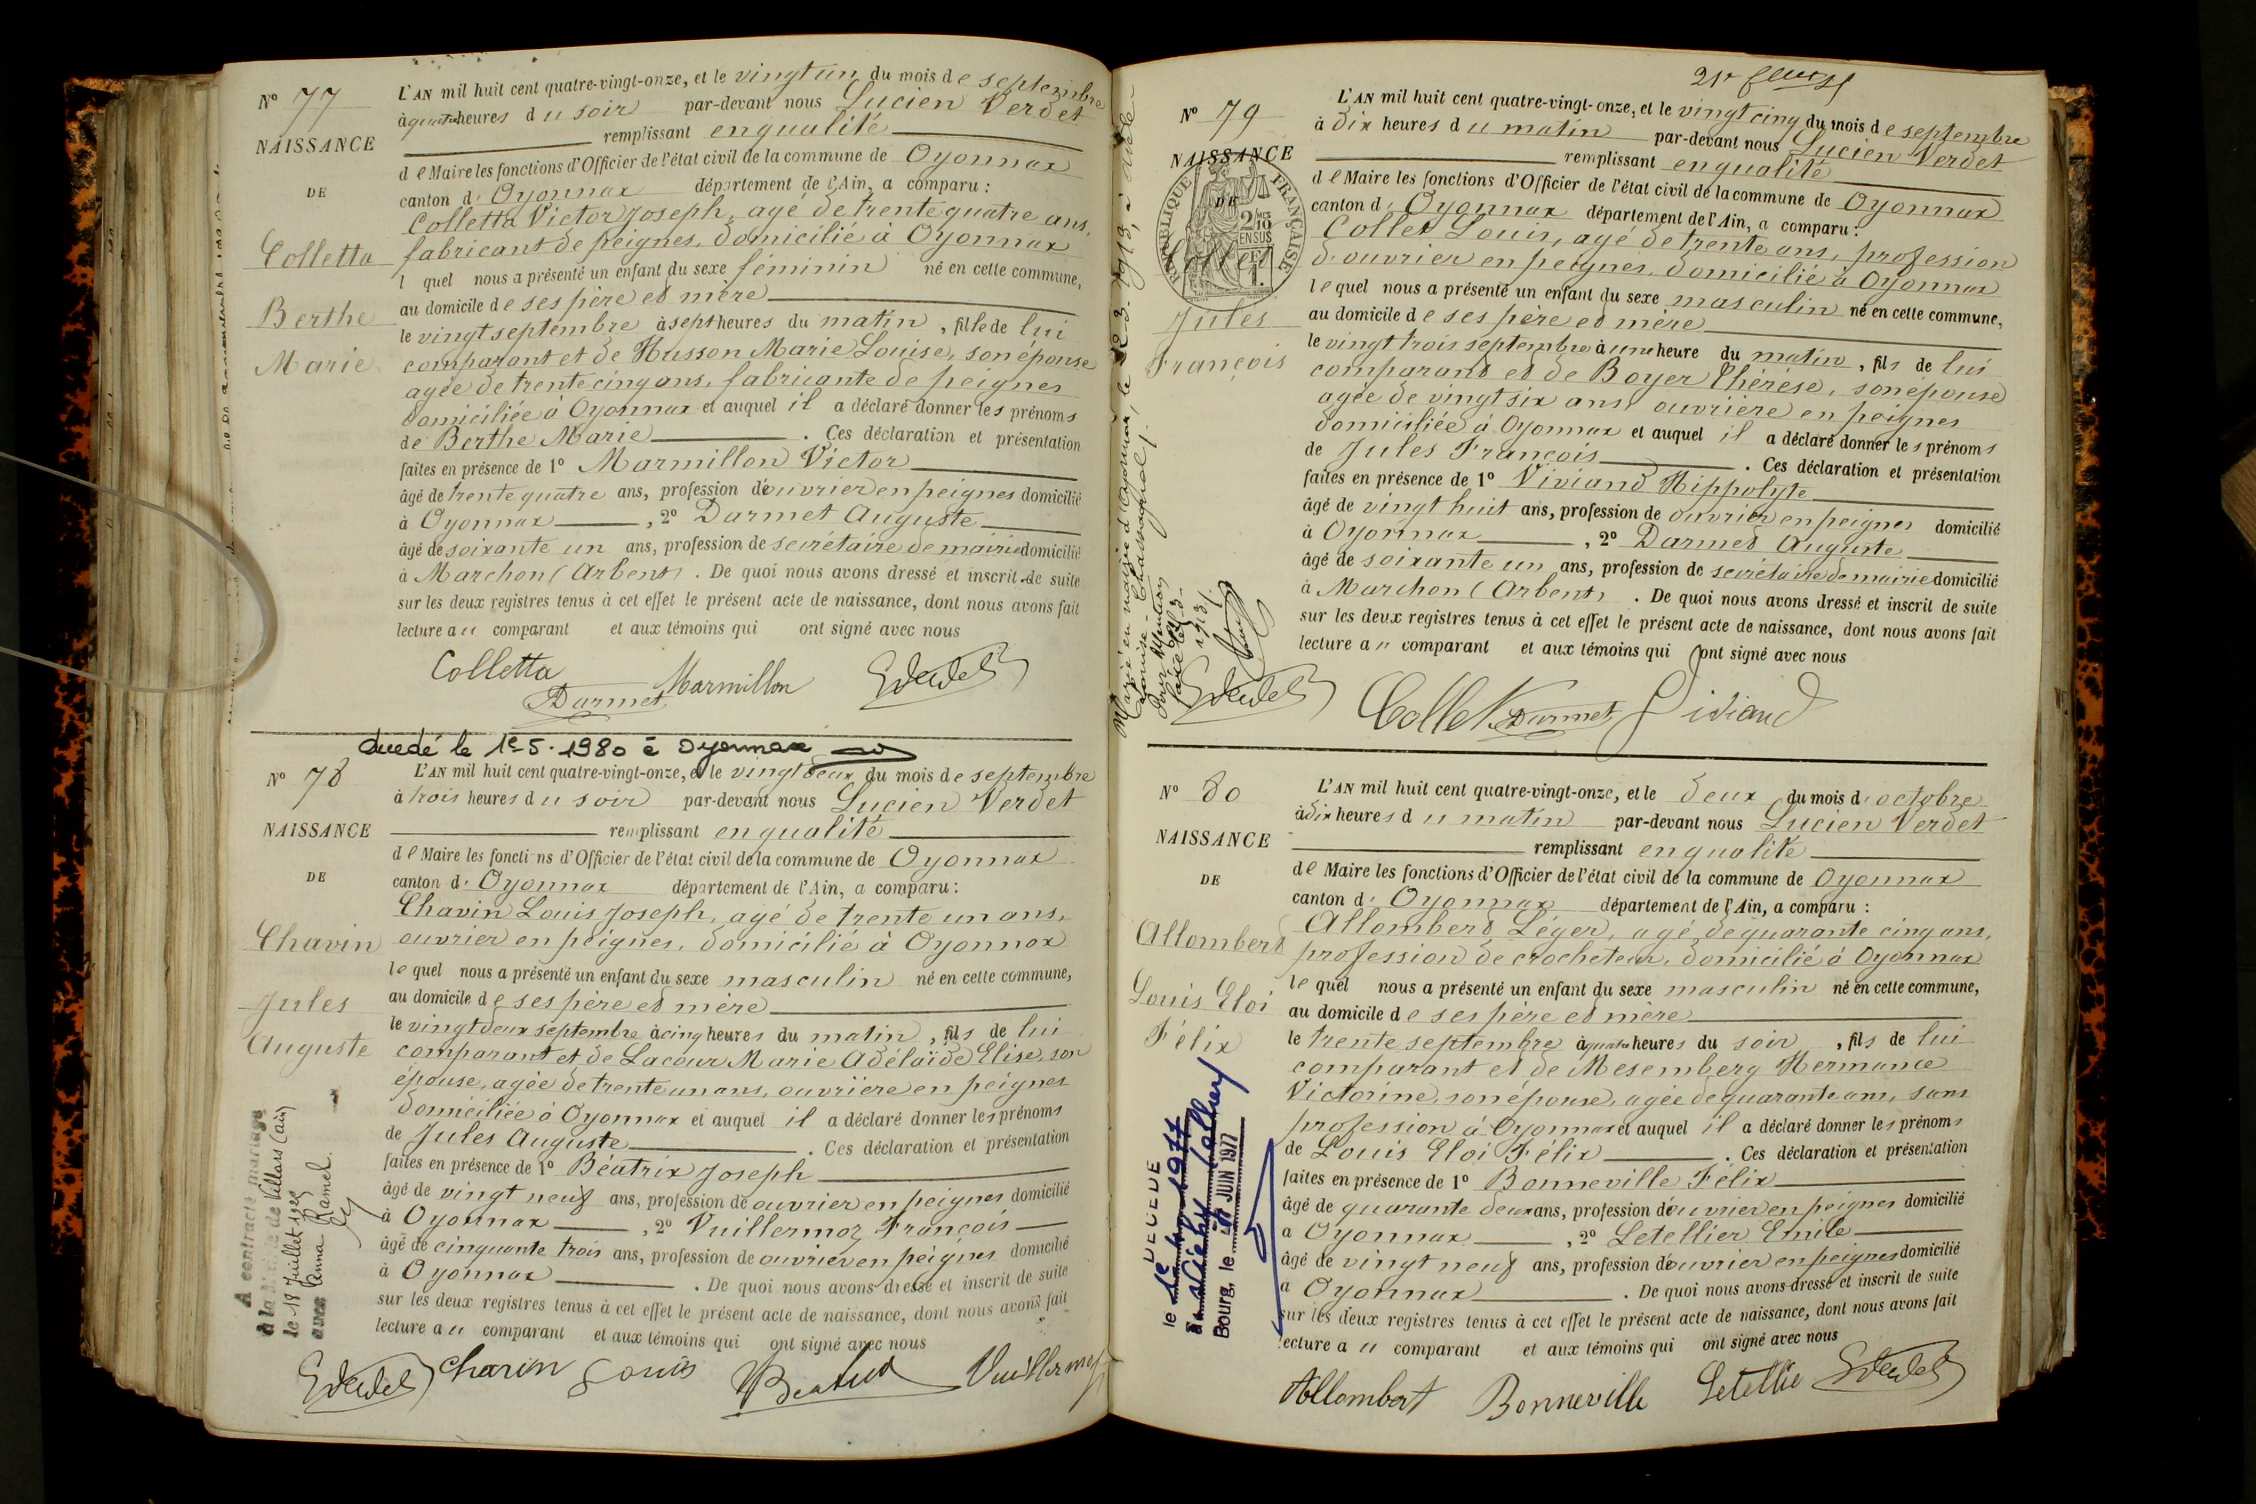 N° 77
NAISSANCE
DE
Colletta
Berthe
Marie
L'AN mil huit cent quatre-vingt-onze, et le vingt un du mois de septembre
à quatre heures du soir par-devant nous Lucien Verdet
remplissant en qualité
de Maire les fonctions d'Officier de l'état civil de la commune de Oyonnax
canton d' Oyonnax département de l'Ain, a comparu :
Colletta Victor Joseph, agé de trente quatre ans,
fabricant de peignes, domicilié à Oyonnax
l quel nous a présenté un enfant du sexe féminin né en cette commune,
au domicile de ses père et mère
le vingt septembre à sept heures du matin, fille de lui
comparant et de Husson Marie Louise, son épouse
agée de trente cinq ans, fabricante de peignes
domiciliée à Oyonnax et auquel il a déclaré donner les prénoms
de Berthe Marie . Ces déclaration et présentation
faites en présence de 1° Marmillon Victor
âgé de trente quatre ans, profession d'ouvrier en peignes domicilié
à Oyonnax , 2° Darmet Auguste
âgé de soixante un ans, profession de secrétaire de mairie domicilié
à Marchon (Arbent) . De quoi nous avons dressé et inscrit de suite
sur les deux registres tenus à cet effet le présent acte de naissance, dont nous avons fait
lecture au comparant et aux témoins qui ont signé avec nous
Colletta Marmillon
Darmet
décédé le 1e-5-1980 à Oyonnax
N° 78
NAISSANCE
DE
Chavin
Jules
Auguste
A contracté mariage
à la Mairie de Villars (ain)
le 18 Juillet 1925
avec Anna Ramel.
L'AN mil huit cent quatre-vingt-onze, et le vingt deux du mois de septembre
à trois heures du soir par-devant nous Lucien Verdet
remplissant en qualité
de Maire les fonctions d'Officier de l'état civil de la commune de Oyonnax
canton d' Oyonnax département de l'Ain, a comparu :
Chavin Louis Joseph, agé de trente un ans,
ouvrier en peignes, domicilié à Oyonnax
le quel nous a présenté un enfant du sexe masculin né en cette commune,
au domicile de ses père et mère
le vingt deux septembre à cinq heures du matin, fils de lui
comparant et de Lacour Marie Adélaïde Elise, son
épouse, agée de trente un ans, ouvrière en peignes
domiciliée à Oyonnax et auquel il a déclaré donner les prénoms
de Jules Auguste . Ces déclaration et présentation
faites en présence de 1° Béatrix Joseph
âgé de vingt neuf ans, profession de ouvrier en peignes domicilié
à Oyonnax , 2° Vuillermoz François
âgé de cinquante trois ans, profession de ouvrier en peignes domicilié
à Oyonnax . De quoi nous avons dressé et inscrit de suite
sur les deux registres tenus à cet effet le présent acte de naissance, dont nous avons fait
lecture au comparant et aux témoins qui ont signé avec nous
Chavin Louis Vuillermoz
N° 79
NAISSANCE
DE
RÉPUBLIQUE FRANÇAISE
2/10 EN SUS
Collet
Jules
François
L'AN mil huit cent quatre-vingt-onze, et le vingt cinq du mois de septembre
à dix heures du matin par-devant nous Lucien Verdet
remplissant en qualité
de Maire les fonctions d'Officier de l'état civil de la commune de Oyonnax
canton d' Oyonnax département de l'Ain, a comparu :
Collet Louis, agé de trente ans, profession
d'ouvrier en peignes, domicilié à Oyonnax
le quel nous a présenté un enfant du sexe masculin né en cette commune,
au domicile de ses père et mère
le vingt trois septembre à une heure du matin, fils de lui
comparant et de Boyer Thérèse, son épouse
agée de vingt six ans, ouvrière en peignes
domiciliée à Oyonnax et auquel il a déclaré donner les prénoms
de Jules François . Ces déclaration et présentation
faites en présence de 1° Viviand Hippolyte
âgé de vingt huit ans, profession de ouvrier en peignes domicilié
à Oyonnax , 2° Darmet Auguste
âgé de soixante un ans, profession de secrétaire de mairie domicilié
à Marchon (Arbent) . De quoi nous avons dressé et inscrit de suite
sur les deux registres tenus à cet effet le présent acte de naissance, dont nous avons fait
lecture au comparant et aux témoins qui ont signé avec nous
Collet Darmet Viviand
N° 80
NAISSANCE
DE
Allombert
Louis Eloi
Félix
DÉCÉDÉ
Bourg, le JUIN 1977
L'AN mil huit cent quatre-vingt-onze, et le deux du mois d'octobre
à dix heures du matin par-devant nous Lucien Verdet
remplissant en qualité
de Maire les fonctions d'Officier de l'état civil de la commune de Oyonnax
canton d' Oyonnax département de l'Ain, a comparu :
Allombert Léger, agé de quarante cinq ans,
profession de crocheteur, domicilié à Oyonnax
le quel nous a présenté un enfant du sexe masculin né en cette commune,
au domicile de ses père et mère
le trente septembre à quatre heures du soir, fils de lui
comparant et de Mesemberg Hermance
Victorine, son épouse, agée de quarante ans, sans
profession à Oyonnax et auquel il a déclaré donner les prénoms
de Louis Eloi Félix . Ces déclaration et présentation
faites en présence de 1° Bonneville Félix
âgé de quarante deux ans, profession d'ouvrier en peignes domicilié
à Oyonnax , 2° Letellier Emile
âgé de vingt neuf ans, profession d'ouvrier en peignes domicilié
à Oyonnax . De quoi nous avons dressé et inscrit de suite
sur les deux registres tenus à cet effet le présent acte de naissance, dont nous avons fait
lecture au comparant et aux témoins qui ont signé avec nous
Allombert Bonneville